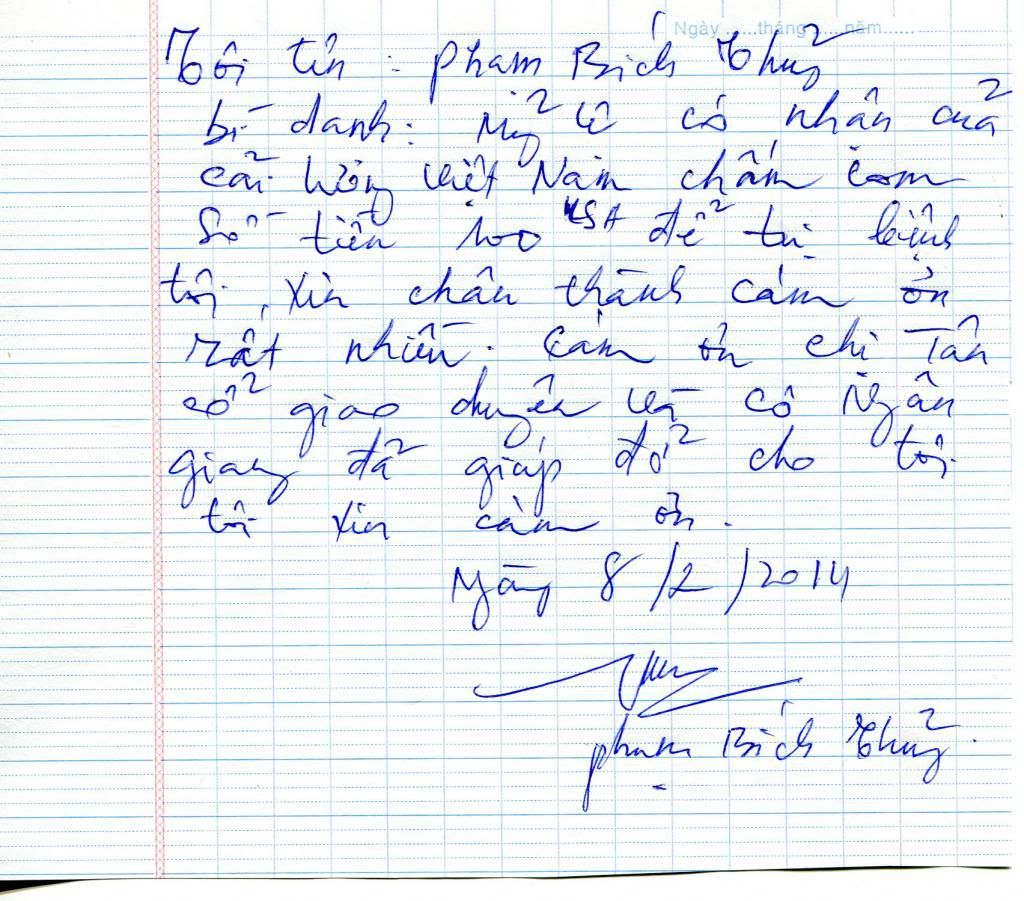 Ngày......tháng......năm......
Tôi tên : phạm Bích Thuỷ
bí danh: Mỹ Lê có nhân của
cải lương Việt Nam chấm com
Số tiền 100 USA để trị bệnh
tôi, xin chân thành cám ơn
rất nhiều. Cám ơn chị Tân
cổ giao duyên và cô Ngân
giang đã giúp đỡ cho tôi
tôi xin cảm ơn.
Ngày 8/2/2014
phạm Bích Thuỷ.